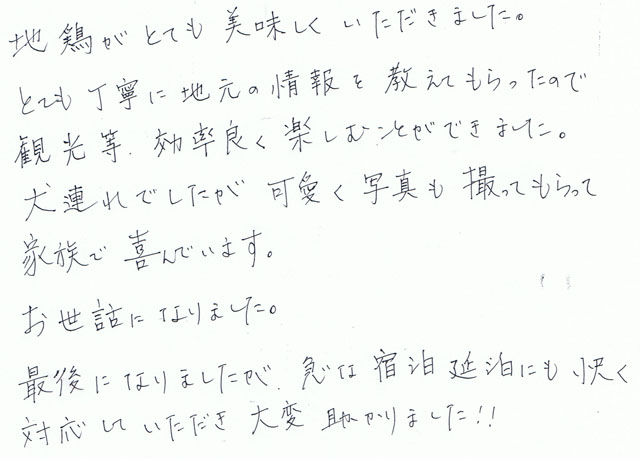 地鶏がとても美味しくいただきました。
とても丁寧に地元の情報を教えてもらったので
観光等、効率良く楽しむことができました。
犬連れでしたが可愛く写真も撮ってもらって
家族で喜んでいます。
お世話になりました。
最後になりましたが、急な宿泊延泊にも快く
対応していただき大変助かりました!!